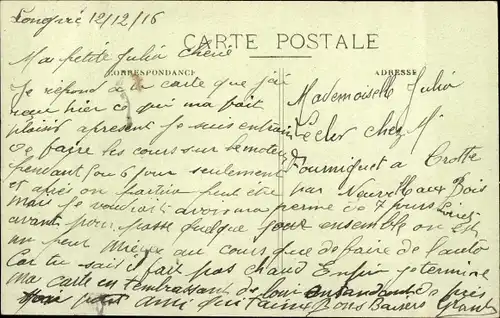 Longpré 12/12/16
CARTE POSTALE
Ma petite Julia Chérie
CORRESPONDANCE
ADRESSE
Je répond à ta carte que j'ai
reçu hier ce qui ma fait
plaisir apresent Je suis entrain
de faire les cours sur le moteur
pendant 5 ou 6 jour seulement
et après on partira peut être
mais je voudrait avoir ma perme de 7 jours
avant pour passé quelque jour ensemble on est
un peu mieux au cours que de faire de l'auto
Car tu sais il fait pas chaud Enfin je termine
ma carte en t'embrassant de loin en attendant de près
ton petit ami qui t'aime Bons Baisers
Mademoiselle Julia
Lecler chez M.
Fourniguet a Crotte
par Neuville aux Bois
Loiret